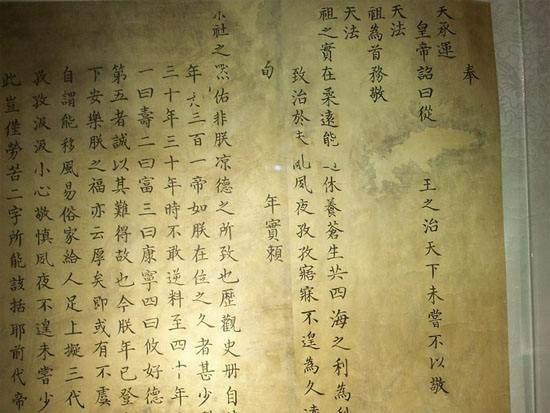 奉
天承運
皇帝詔曰從 王之治天下未嘗不以敬
天法
祖為首務敬
天法
祖之實在柔遠能 休養蒼生共四海之利為
致治於 夙夜孜孜寤寐不遑為久
旬 年實賴
社之 佑非朕凉德之所致也歷觀史册自
年 三百一帝如朕在位之久者甚少
三十年三十年時不敢逆料至四十年
一曰壽二曰富三曰康寧四曰攸好德
第五者誠以其難得故也今朕年已登
下安樂朕之福亦云厚矣即或有不虞
自謂能移風易俗家給人足上擬三代
孜孜汲汲小心敬慎夙夜不遑未嘗少
此豈僅勞苦二字所能該括耶前代帝